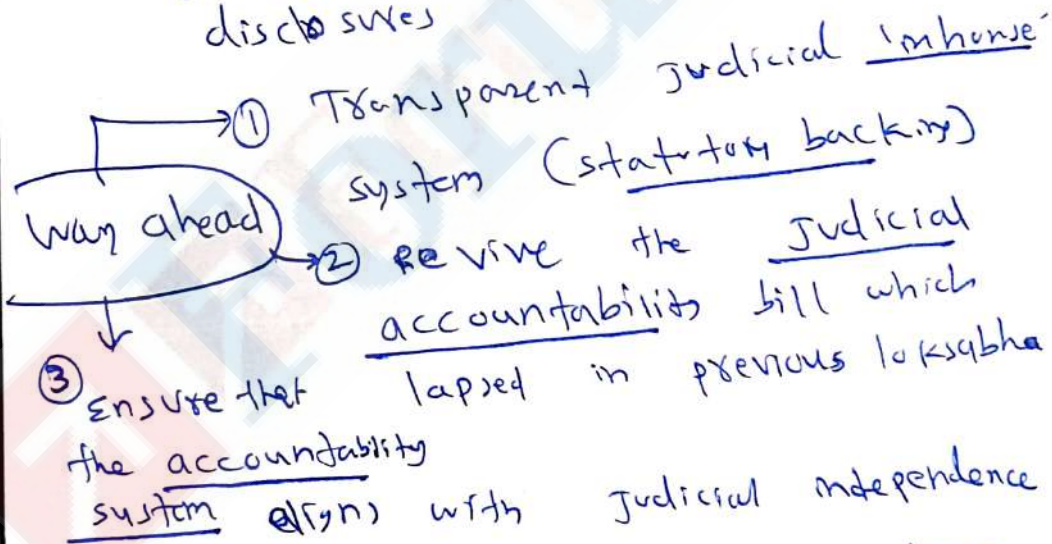 disclosures
① Transparent judicial 'inhouse'
system (statutory backing)
way ahead
② Revive the Judicial
accountability bill which
lapsed in previous loksabha
③ Ensure that
the accountability
system aligns with Judicial independence